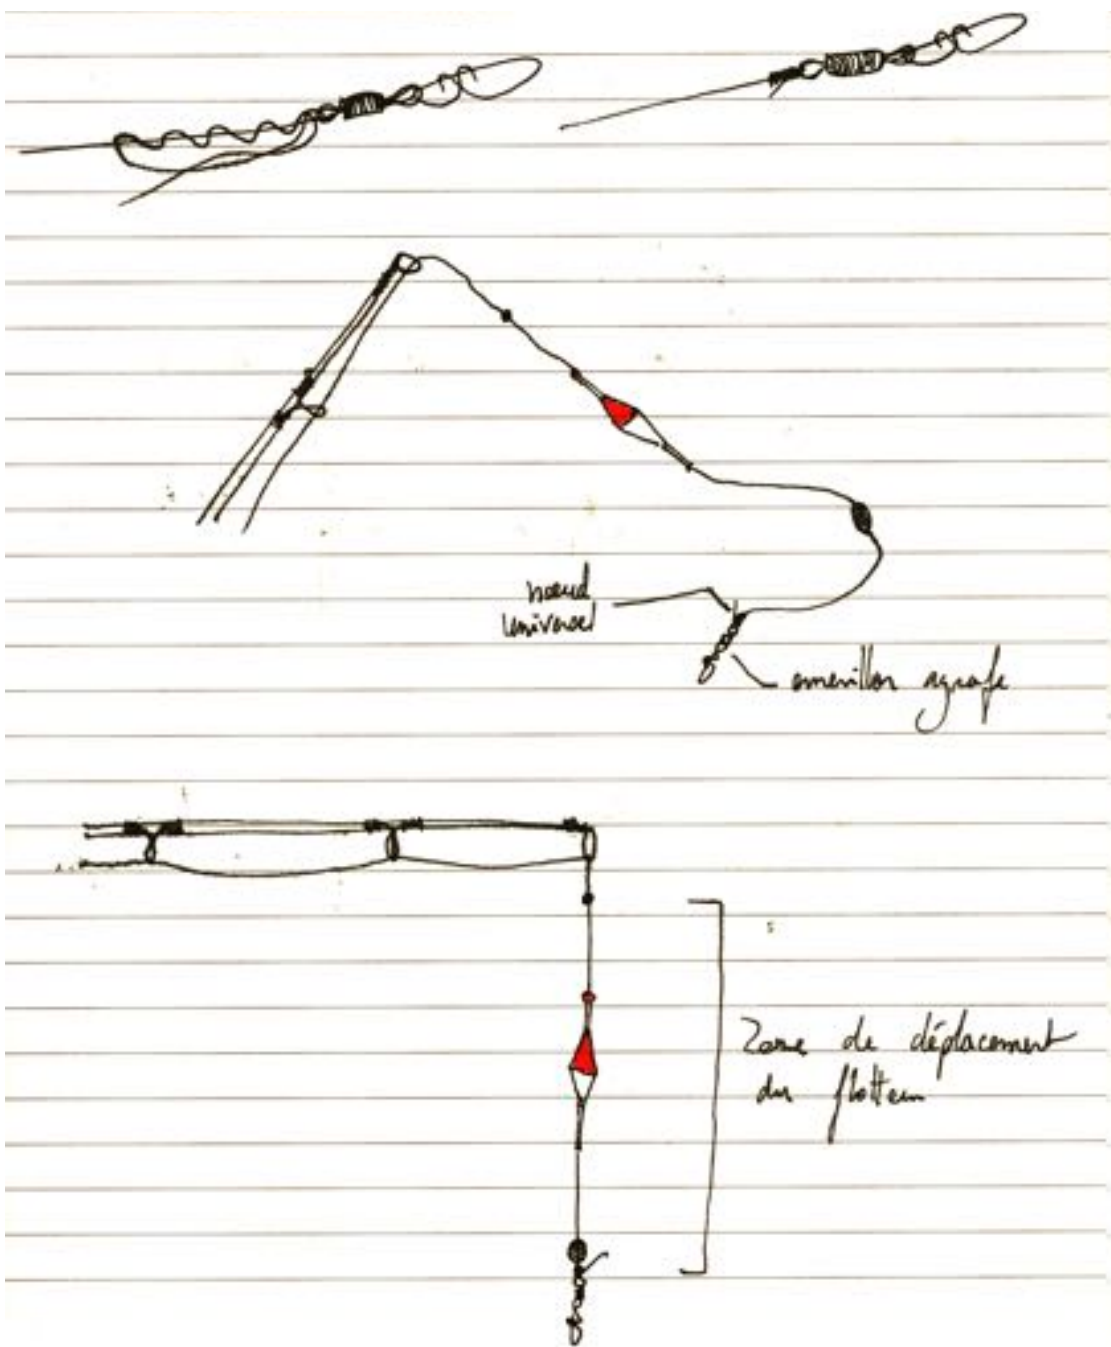 nœud
universel
émerillon agrafe
Zone de déplacement
du flotteur